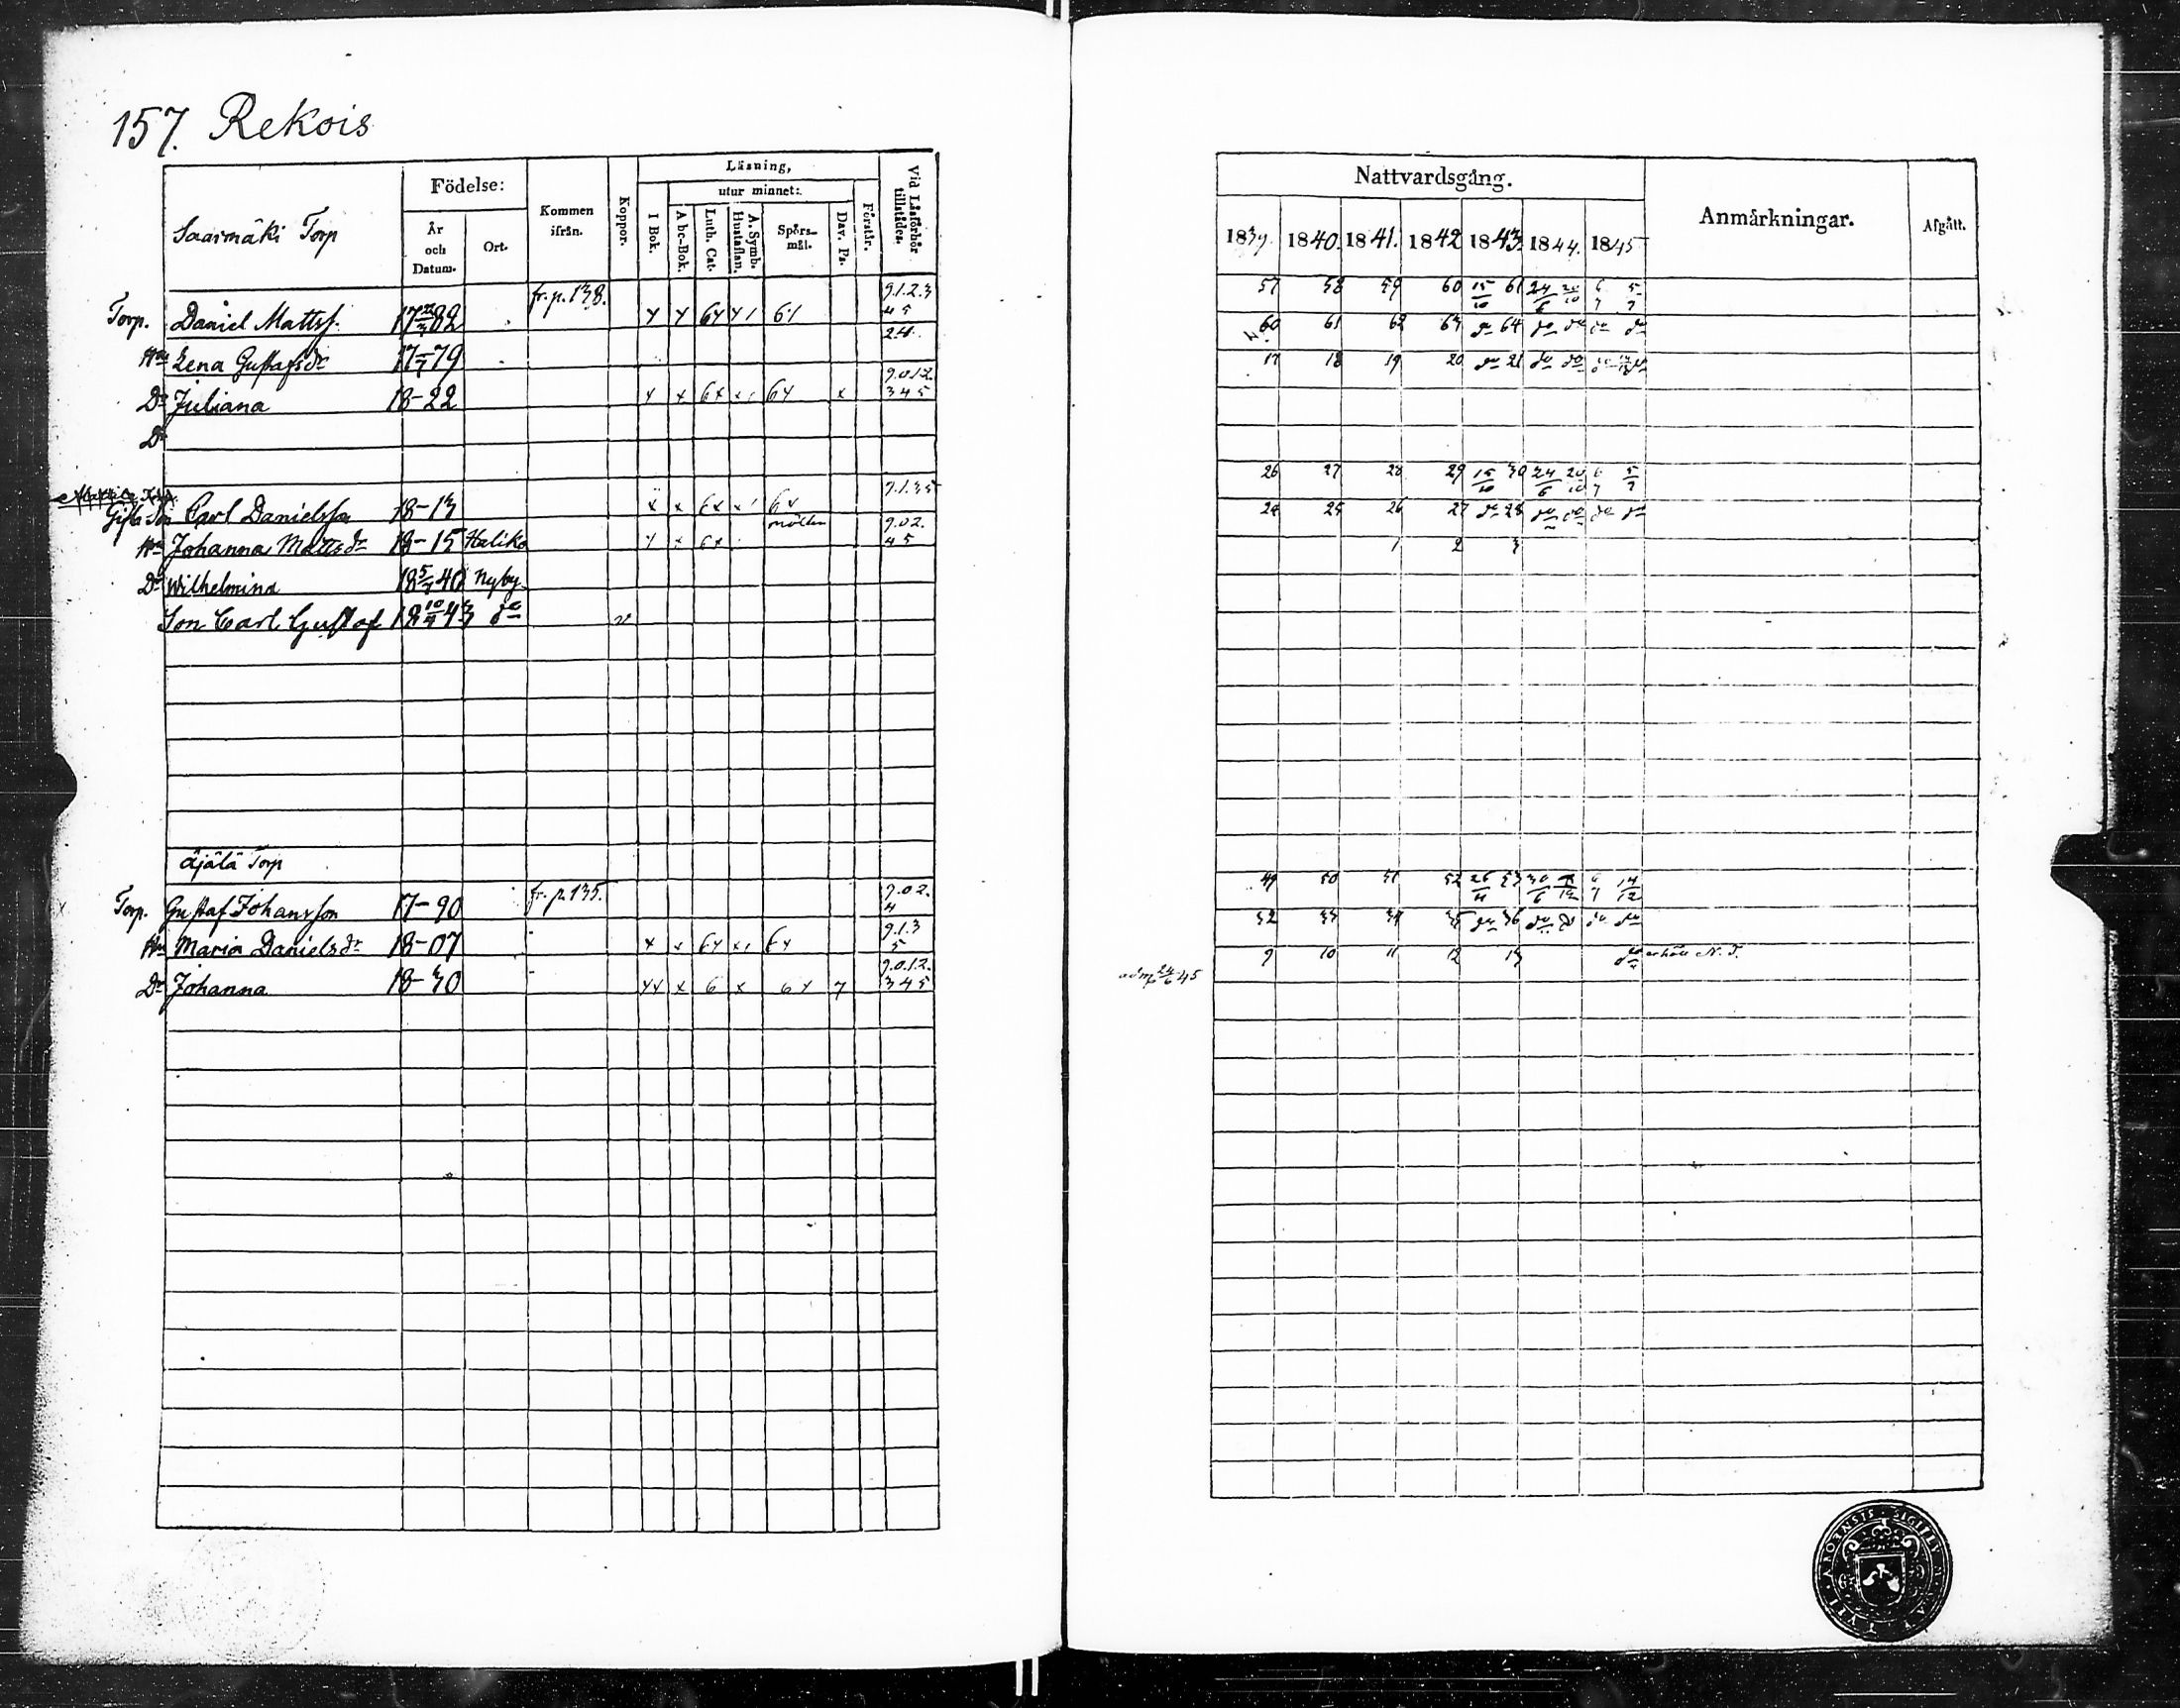 157. Rekois
Saarmäki Torp
Födelse:
År och Datum.
Ort.
Kommen ifrån.
Koppor.
Läsning,
I Bok.
utur minnet:
Abc-Bok.
Luth. Cat.
A. Symb. Hustaflan.
Spörsmål.
Dav. Ps.
Förstår.
Vid Läsförhör tillstädes.
Torp. Daniel Mattss. 82 fr. p. 138. 9.1.2.3 4 5
Hu Lena Gustafsdr 79 2.4.
Dr Juliana 18-22 x x 6x 6x x 9.0.1.2. 3 4 5
Dr
Gifta Son Carl Danielsson 18-13 x x 6x 6x 9.1.3 5
Hu Johanna Mattsdr 18-15 Haliko 6x 9.0.2. 4 5
Dr Wilhelmina 18 5/7 40 Nyby
Son Carl Gustaf 43 do v
Äjälä Torp
Torp. Gustaf Johansson 17-90 fr. p. 135. 9.0.2. 4
Hu Maria Danielsdr 18-07 x x 6x 6x 9.1.3 5
Dr Johanna 18-30 x 6 x 6x 7 9.0.1.2. 3 4 5
Nattvardsgång.
Anmärkningar.
Afgått.
1839. 1840. 1841. 1842 1843. 1844. 1845
57 58 59 60 15/10 61 24/6 20/10 6/7 5/7
60 61 62 63 do 64 do do do do
17 18 19 20 do 21 do do
26 27 28 29 15/10 30 24/6 20/10 6/7 5/7
24 25 26 27 do 28 do do do do
1 2 3
49 50 51 52 26/11 53 30/6 6/7 14/12
32 33 34 35 do 36 do do do do
adm 24/6 45 9 10 11 12 13 do erhöll N. T.